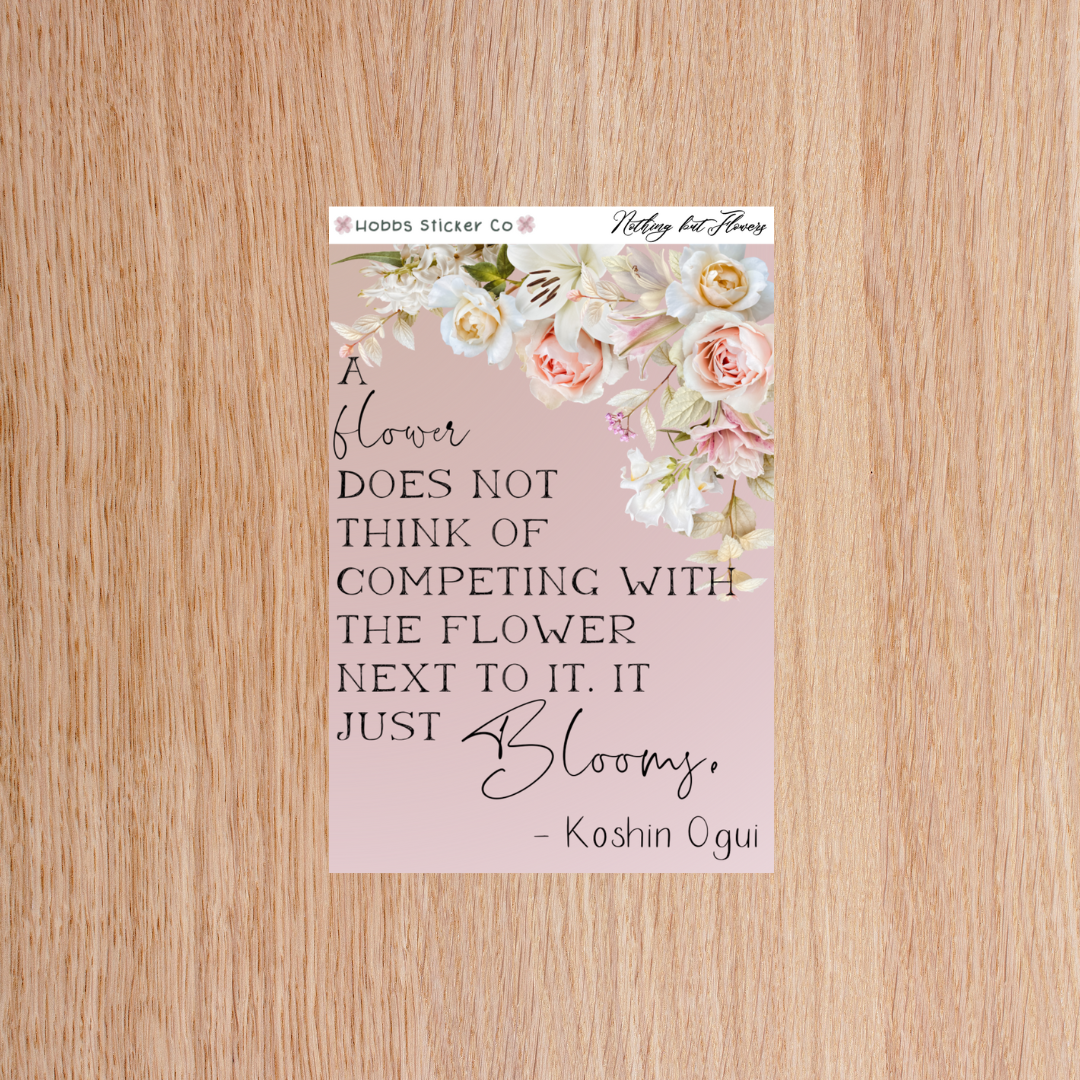 Hobbs Sticker Co
Nothing but Flowers
A
flower
DOES NOT
THINK OF
COMPETING WITH
THE FLOWER
NEXT TO IT. IT
JUST Blooms.
- Koshin Ogui